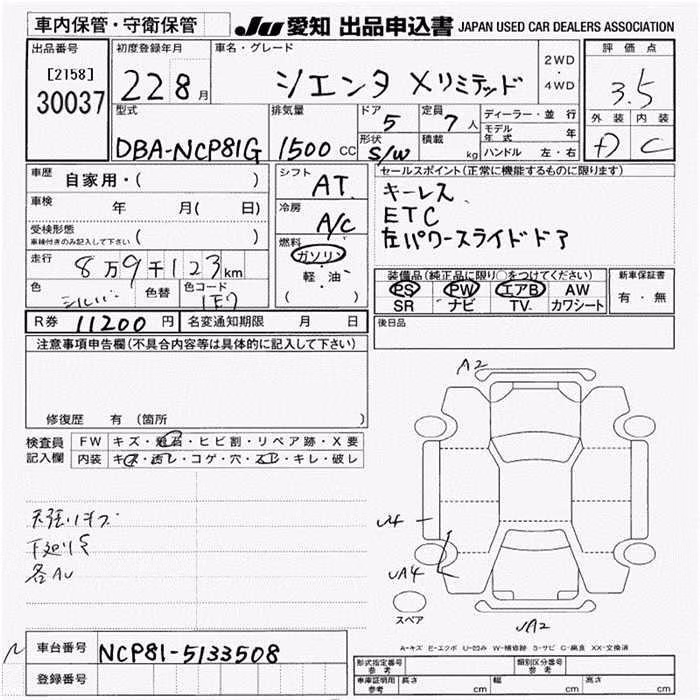 車内保管・守衛保管
JU 愛知 出品申込書 JAPAN USED CAR DEALERS ASSOCIATION
出品番号
[2158]
30037
初度登録年月
22 8月
車名・グレード
シエンタ Xリミテッド
2WD
・
4WD
評価点
3.5
外装 内装
D C
型式
DBA-NCP81G
排気量
1500 CC
ドア
5
形状
S/W
定員
7人
積載
kg
ディーラー・並行
モデル年式 年
ハンドル 左・右
車歴
自家用・( )
車検
年 月( 日)
受検形態
車検付きのみ記入して下さい ( )
走行
8万9千123km
色
シルバー
色替
色コード
1E7
シフト
AT
冷房
A/C
燃料
ガソリン
・
軽・油
( )
セールスポイント(正常に機能するものに限ります)
キーレス
ETC
左パワースライドドア
装備品(純正品に限り○をつけてください)
PS PW エアB AW
SR ナビ TV カワシート
新車保証書
有・無
後日品
R券 11200円
名変通知期限 月 日
注意事項申告欄(不具合内容等は具体的に記入して下さい)
修復歴 有 (箇所 )
検査員
記入欄
FW キズ・飛石・ヒビ割・リペア跡・X要
内装 キズ・汚レ・コゲ・穴・スレ・キレ・破レ
下廻りS
各AU
A2
U4
UA4
UA2
スペア
A-キズ E-エクボ U-凹み W-補修跡 S-サビ C-腐食 XX-交換済
車台番号 NCP81-5133508
登録番号
形式指定番号
参考
類別区分番号
参考
車庫証明用
参考
長さ cm 幅 cm 高さ cm